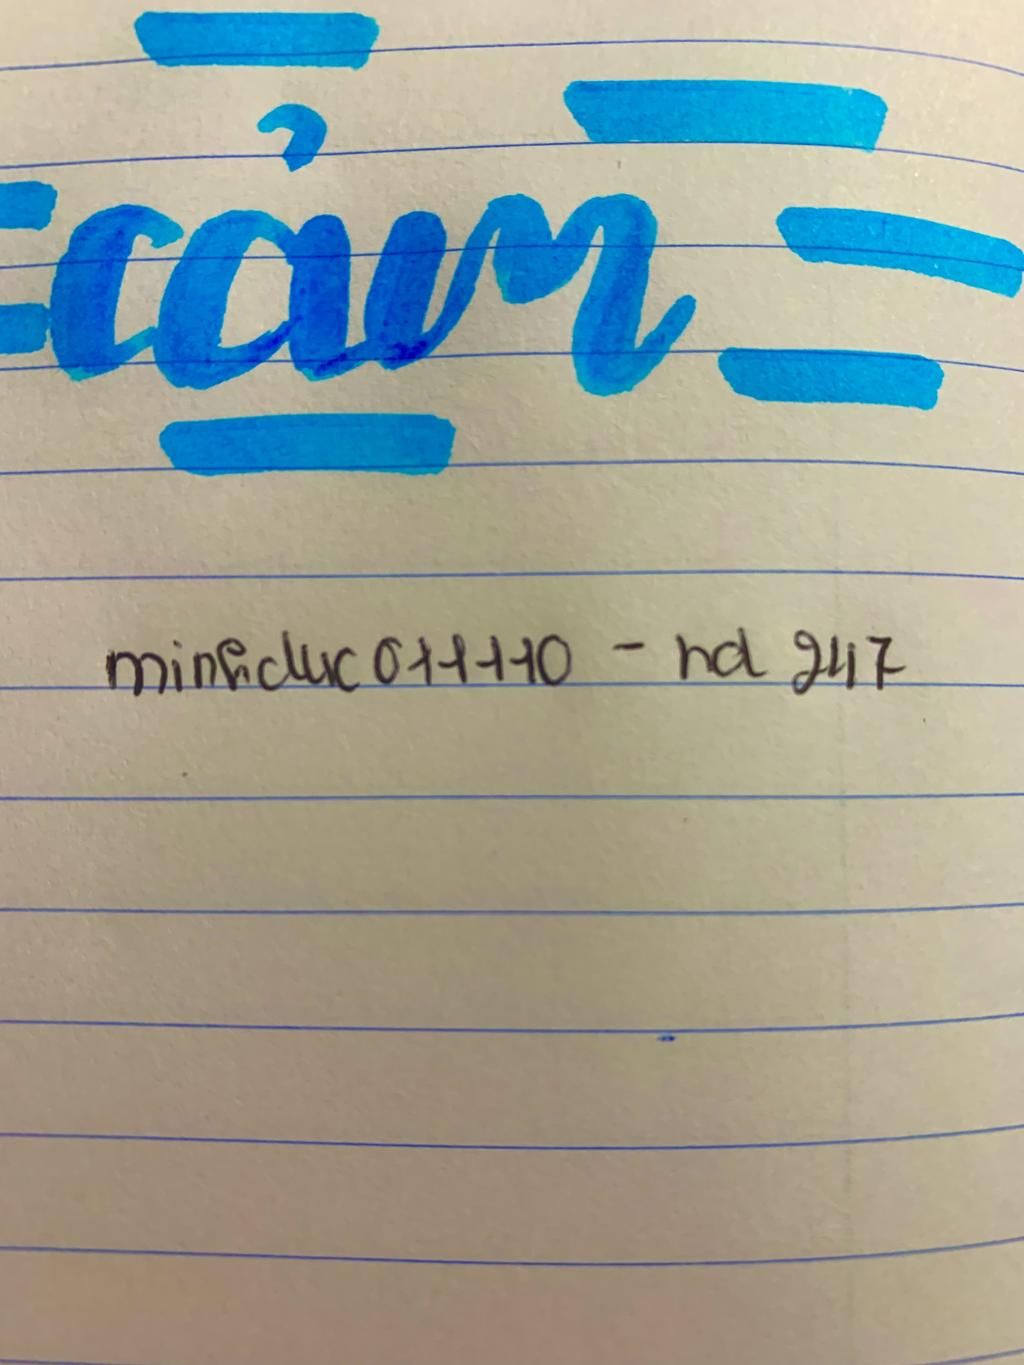 cảm
minhduc011110 - hd 247